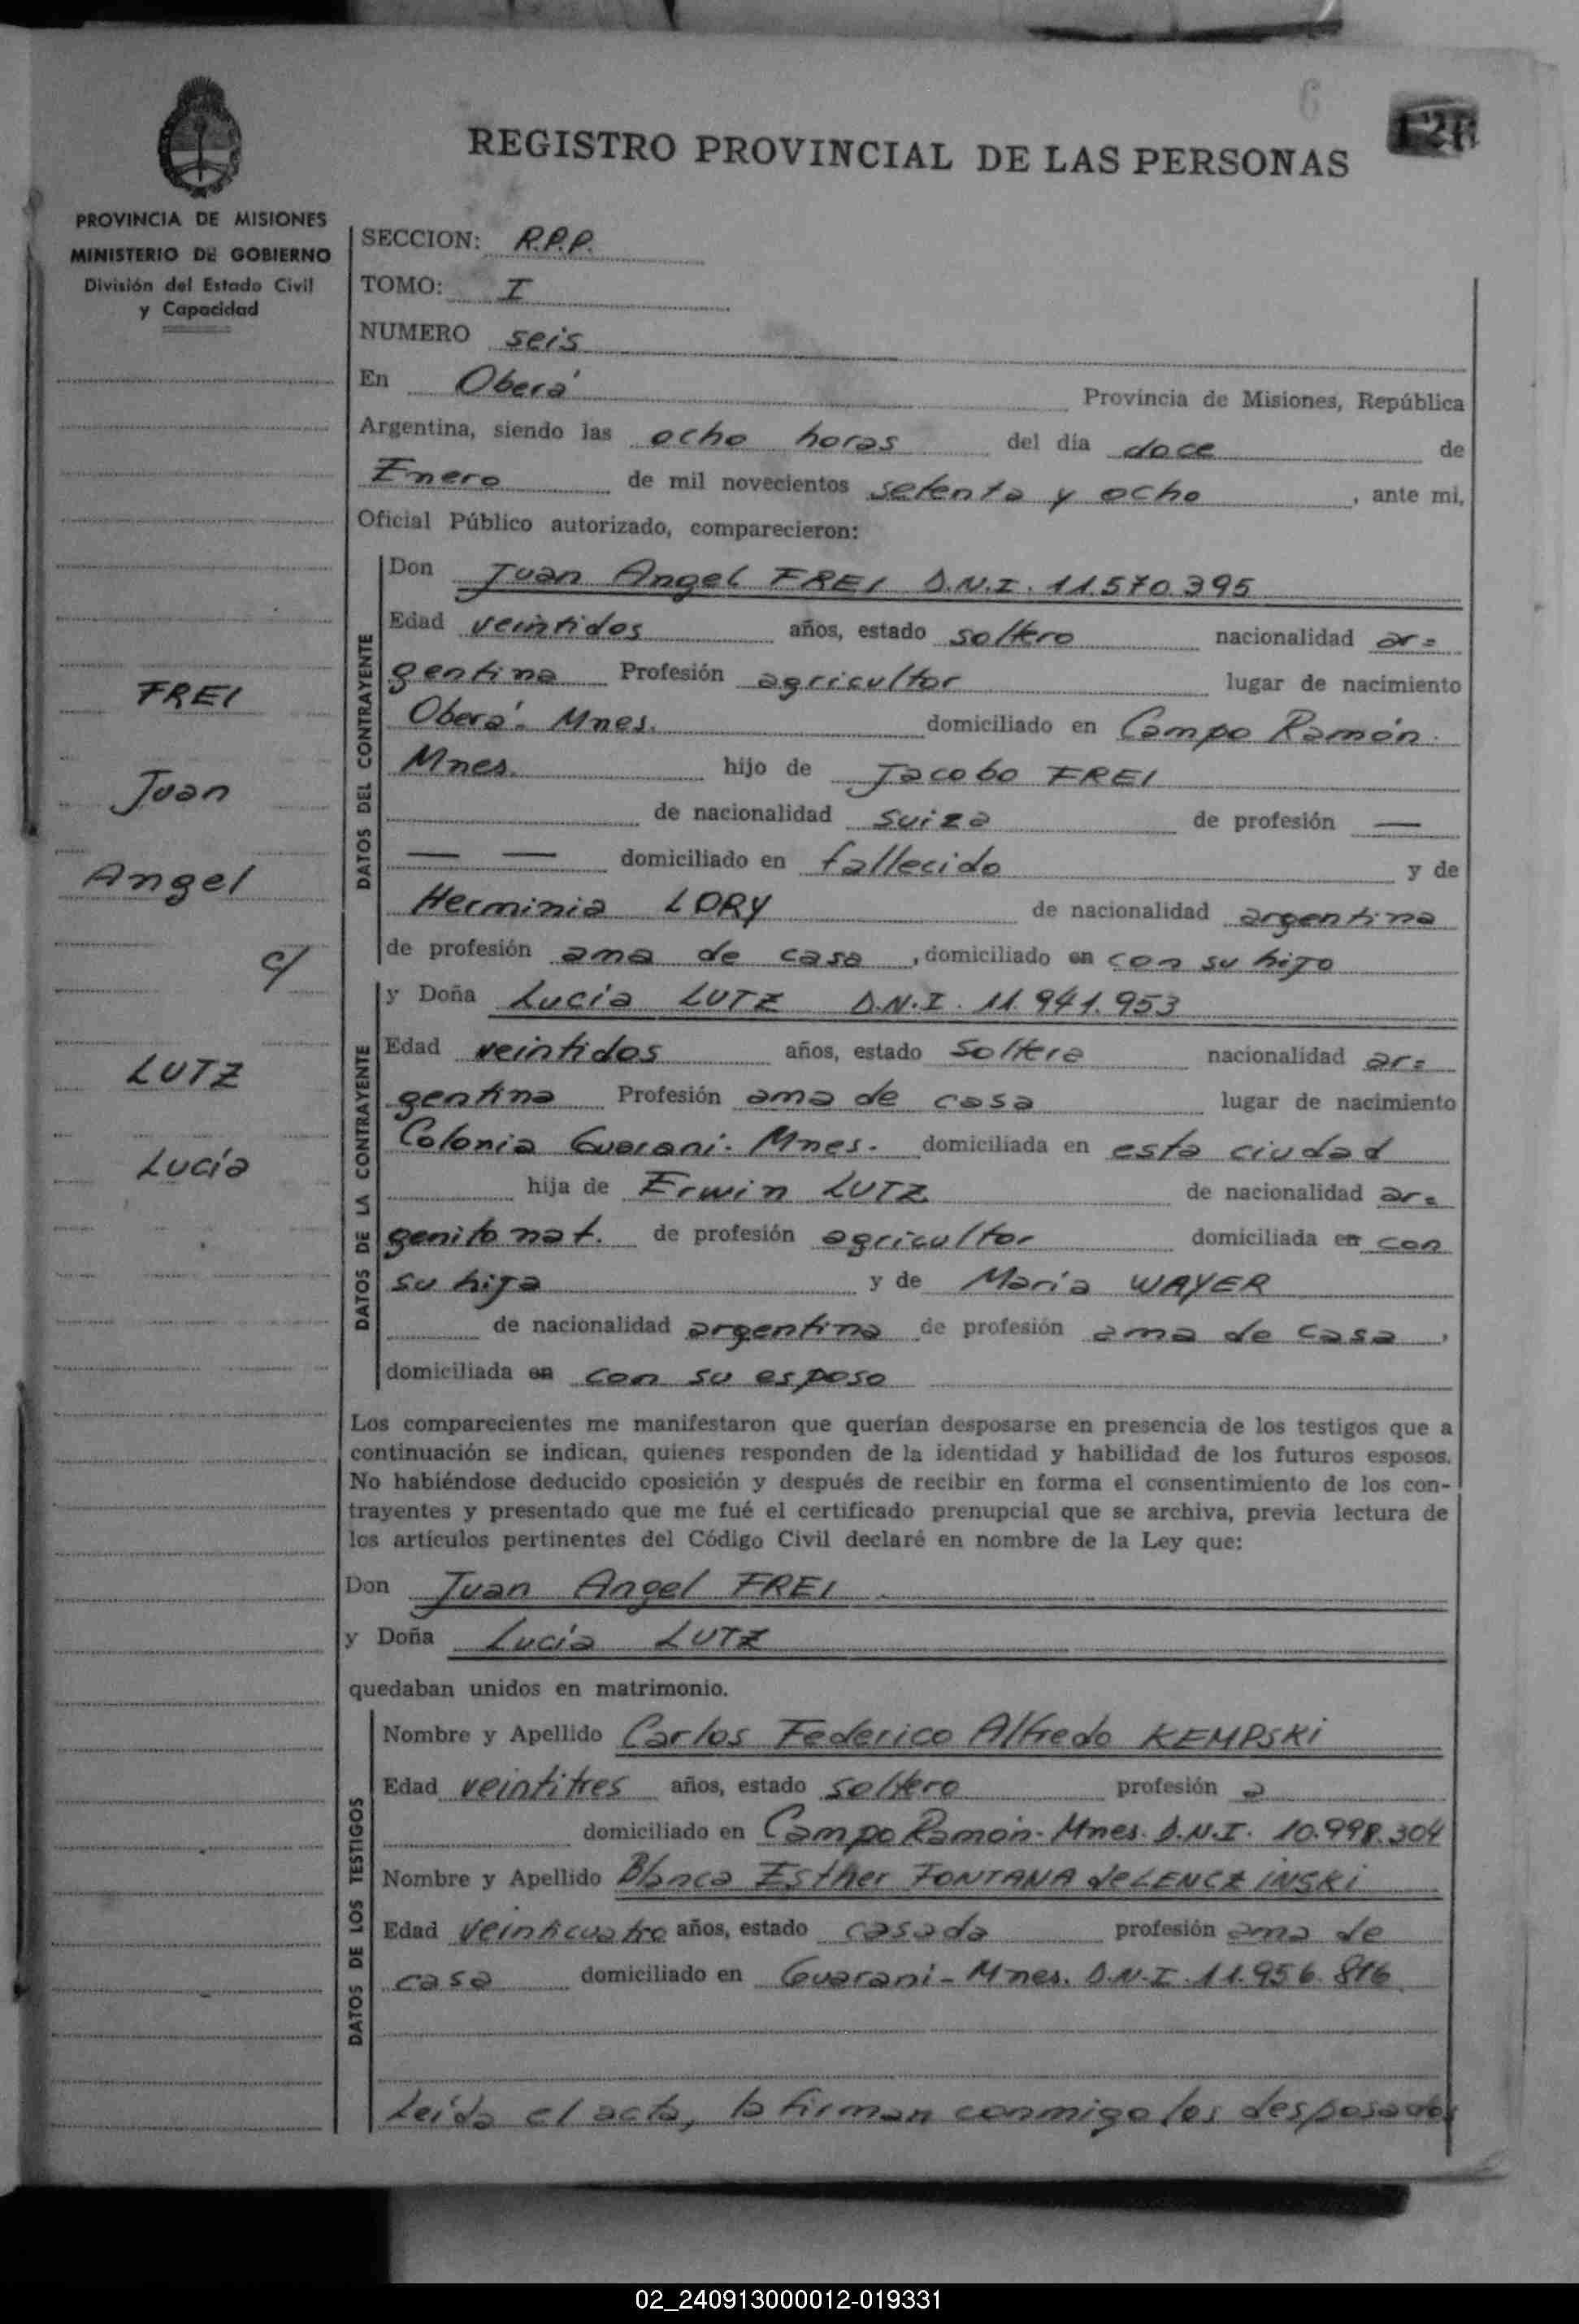 6
REGISTRO PROVINCIAL DE LAS PERSONAS
PROVINCIA DE MISIONES
MINISTERIO DE GOBIERNO
División del Estado Civil
y Capacidad
FREI
Juan
Angel
c/
LUTZ
Lucía
SECCION: R.P.P.
TOMO: I
NUMERO seis
En Oberá Provincia de Misiones, República
Argentina, siendo las ocho horas del día doce de
Enero de mil novecientos setenta y ocho, ante mi,
Oficial Público autorizado, comparecieron:
DATOS DEL CONTRAYENTE
Don Juan Angel FREI D.N.I. 11.570.395
Edad veintidos años, estado soltero nacionalidad ar=
gentina Profesión agricultor lugar de nacimiento
Oberá- Mnes. domiciliado en Campo Ramón.
Mnes. hijo de Jacobo FREI
de nacionalidad suiza de profesión —
— — domiciliado en fallecido y de
Herminia LORY de nacionalidad argentina
de profesión ama de casa, domiciliado en con su hijo
DATOS DE LA CONTRAYENTE
y Doña Lucía LUTZ D.N.I. 11.941.953
Edad veintidos años, estado soltera nacionalidad ar=
gentina Profesión ama de casa lugar de nacimiento
Colonia Guaraní- Mnes. domiciliada en esta ciudad
hija de Erwin LUTZ de nacionalidad ar=
genito nat. de profesión agricultor domiciliada en con
su hija y de María WAYER
de nacionalidad argentina de profesión ama de casa,
domiciliada en con su esposo
Los comparecientes me manifestaron que querían desposarse en presencia de los testigos que a
continuación se indican, quienes responden de la identidad y habilidad de los futuros esposos.
No habiéndose deducido oposición y después de recibir en forma el consentimiento de los con-
trayentes y presentado que me fué el certificado prenupcial que se archiva, previa lectura de
los artículos pertinentes del Código Civil declaré en nombre de la Ley que:
Don Juan Angel FREI
y Doña Lucía LUTZ
quedaban unidos en matrimonio.
DATOS DE LOS TESTIGOS
Nombre y Apellido Carlos Federico Alfredo KEMPSKI
Edad veintitres años, estado soltero profesión a
domiciliado en Campo Ramón- Mnes. D.N.I. 10.998.304
Nombre y Apellido Blanca Esther FONTANA de LENCZINSKI
Edad veinticuatro años, estado casada profesión ama de
casa domiciliado en Guaraní- Mnes. D.N.I. 11.956.816
Leída el acta, la firman conmigo los desposados
02_240913000012-019331